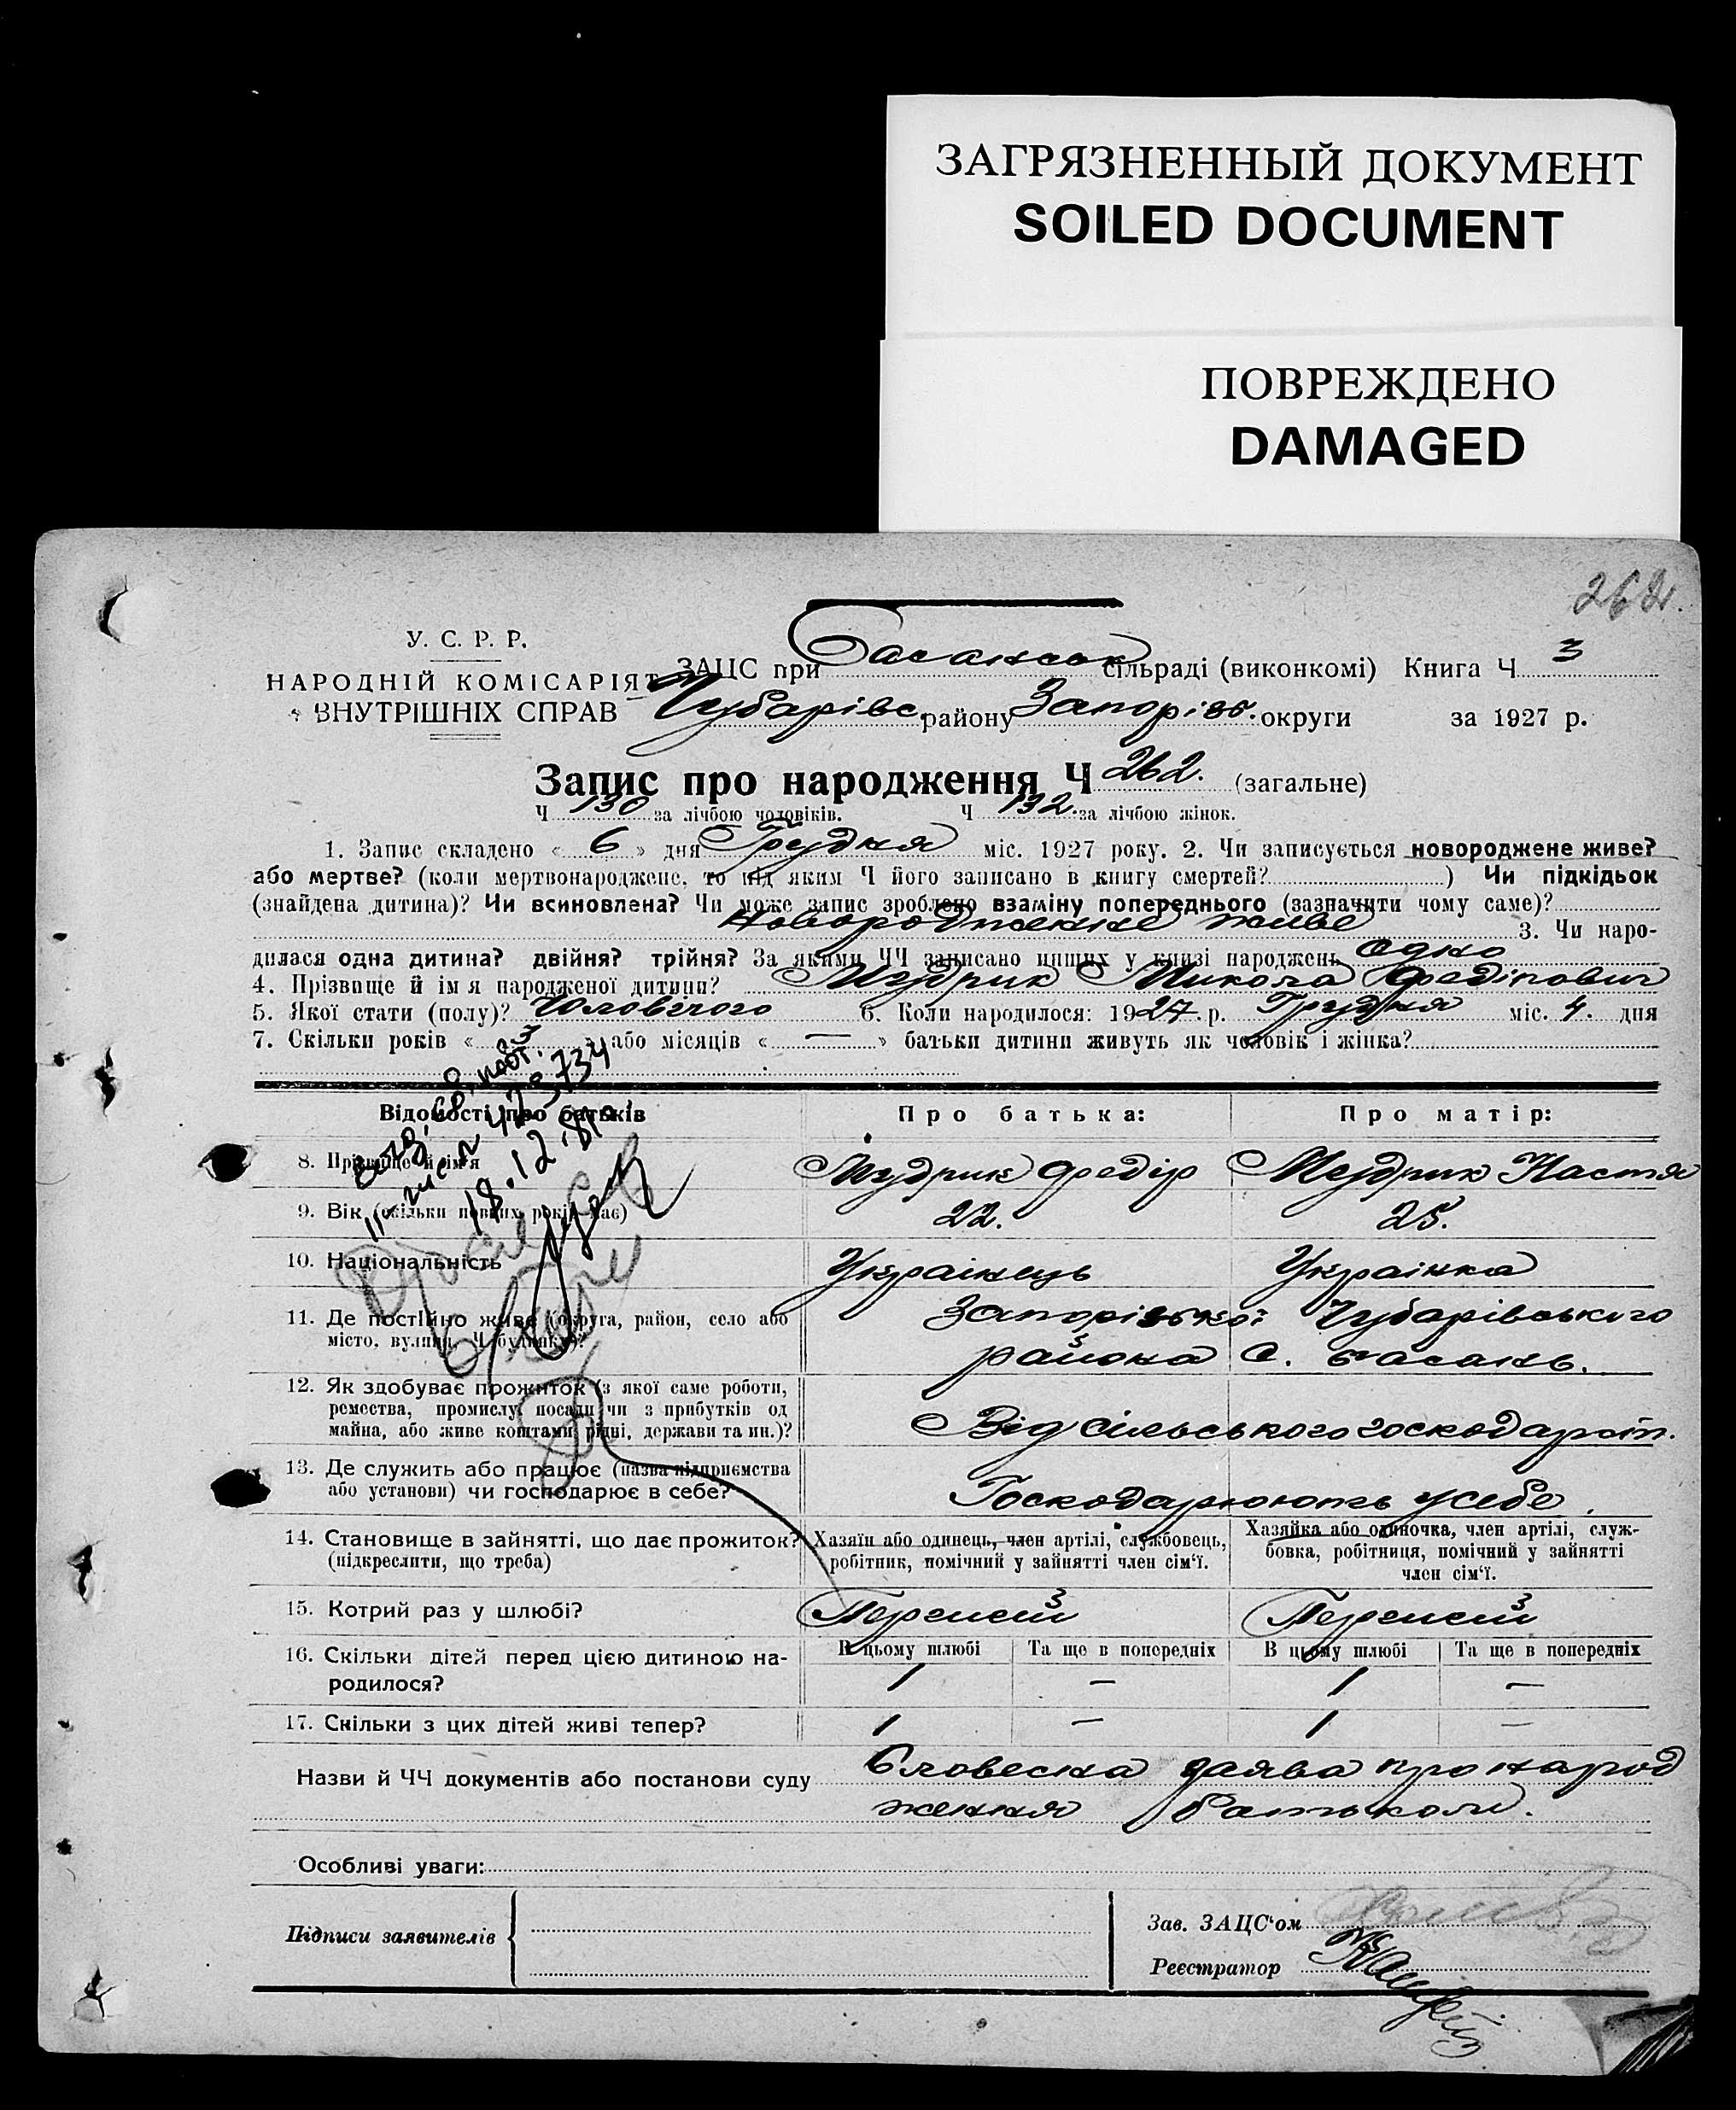 ЗАГРЯЗНЕННЫЙ ДОКУМЕНТ
SOILED DOCUMENT
ПОВРЕЖДЕНО
DAMAGED
262.
У. С. Р. Р.
НАРОДНІЙ КОМІСАРІЯТ
ВНУТРІШНІХ СПРАВ
ЗАЦС при Басанськ сільраді (виконкомі) Книга Ч 3
Чубарівс. району Запоріз. округи за 1927 р.
Запис про народження Ч 262. (загальне)
Ч 130 за лічбою чоловіків. Ч 132. за лічбою жінок.
1. Запис складено « 6 » дня Грудня міс. 1927 року. 2. Чи записується новороджене живе?
або мертве? (коли мертвонароджене, то під яким Ч його записано в книгу смертей? ) Чи підкідьок
(знайдена дитина)? Чи всиновлена? Чи може запис зроблено взаміну попереднього (зазначити чому саме)?
Новородженне живе 3. Чи наро-
дилася одна дитина? двійня? трійня? За якими ЧЧ записано инших у книзі народжень Одно
4. Прізвище й ім я народженої дитини? Мудрик Микола Федірович
5. Якої стати (полу)? Чоловічого 6. Коли народилося: 1927. р. Грудня міс. 4. дня
7. Скільки років « 3 » або місяців « — » батьки дитини живуть як чоловік і жінка?
Відомості про батьків Про батька: Про матір:
8. Прізвище й ім'я Мудрик Федір Мудрик Настя
9. Вік (скільки повних років має) 22. 25.
10. Національність Українець Українка
11. Де постійно живе (округа, район, село або Запорізької Чубарівського
місто, вулиця, Ч будинку)? района С. Басань.
12. Як здобуває прожиток (з якої саме роботи,
ремества, промислу, посади чи з прибутків од
майна, або живе коштами рідні, держави та ин.)? Від сільського господарст.
13. Де служить або працює (назва підприємства
або установи) чи господарює в себе? Господарюють у себе
14. Становище в зайнятті, що дає прожиток?
(підкреслити, що треба)
Хазяїн або одинець, член артілі, службовець,
робітник, помічний у зайнятті член сім'ї.
Хазяйка або одиночка, член артілі, служ-
бовка, робітниця, помічний у зайнятті
член сім'ї.
15. Котрий раз у шлюбі? Перший Перший
В цьому шлюбі Та ще в попередніх В цьому шлюбі Та ще в попередніх
16. Скільки дітей перед цією дитиною на-
родилося? 1 — 1 —
17. Скільки з цих дітей живі тепер? 1 — 1 —
Назви й ЧЧ документів або постанови суду Словесна заява про народ
ження батьком.
Особливі уваги:
Підписи заявителів
Зав. ЗАЦС'ом
Реєстратор
18.12.81